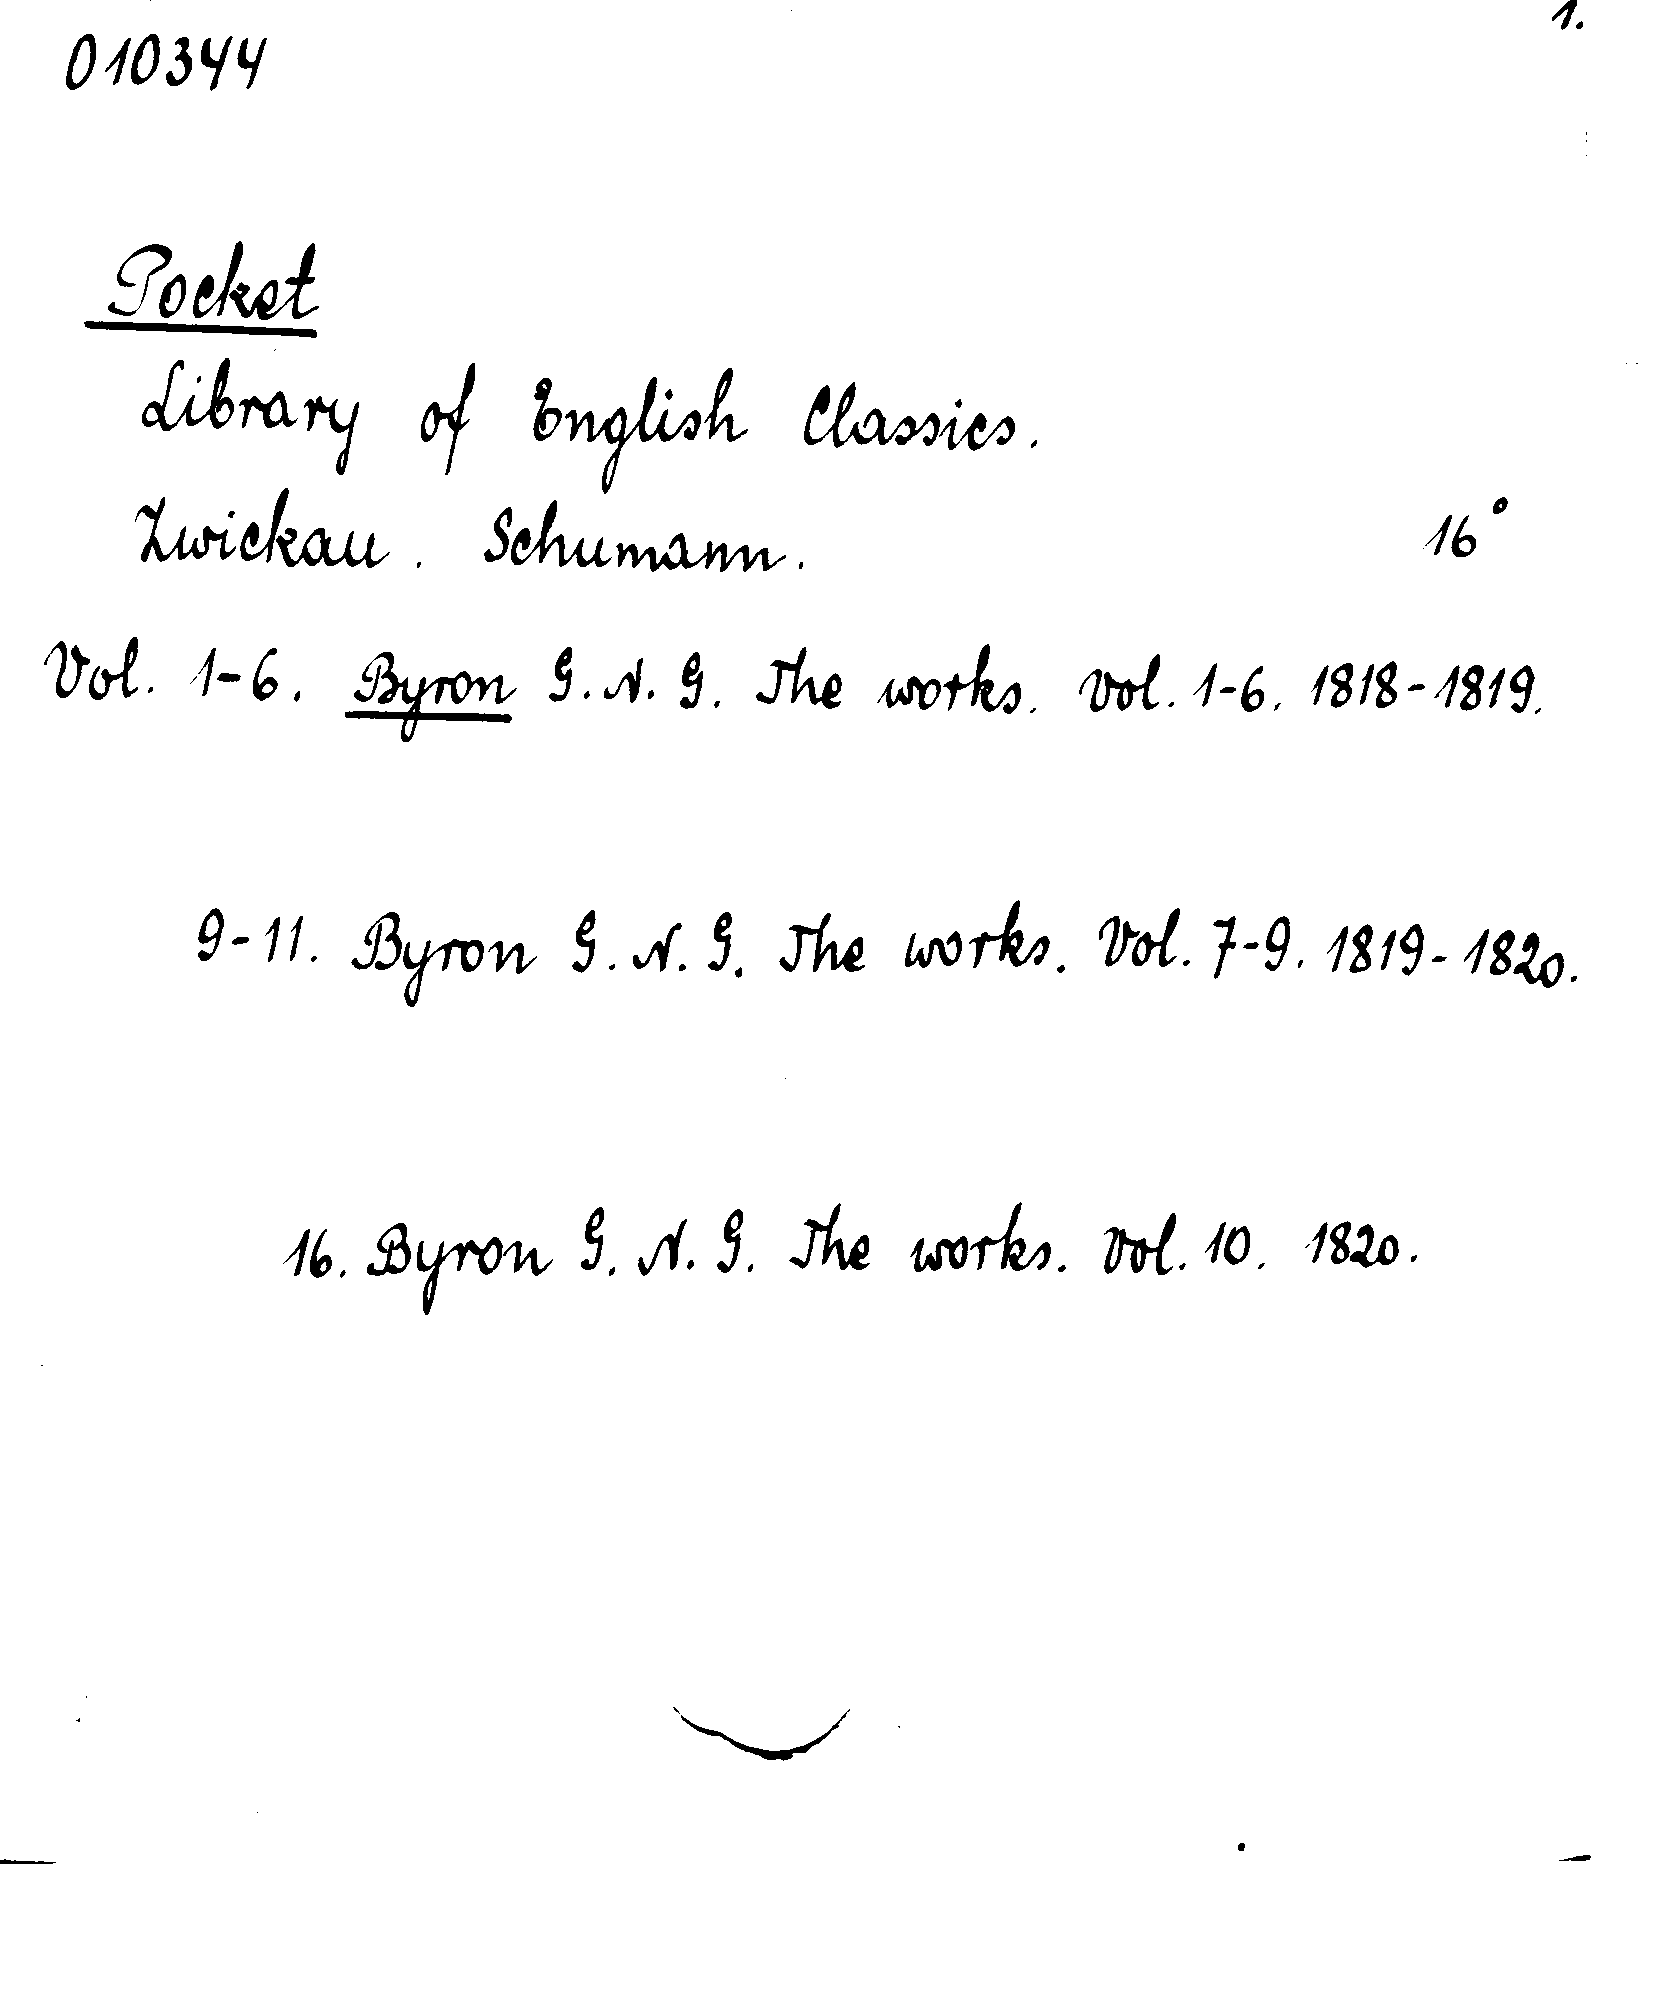 1.
010344
Pocket
Library of English Classics.
Zwickau. Schumann. 16°
Vol. 1-6. Byron G. N. G. The works. Vol. 1-6. 1818-1819.
9-11. Byron G. N. G. The works. Vol. 7-9. 1819-1820.
16. Byron G. N. G. The works. Vol. 10. 1820.